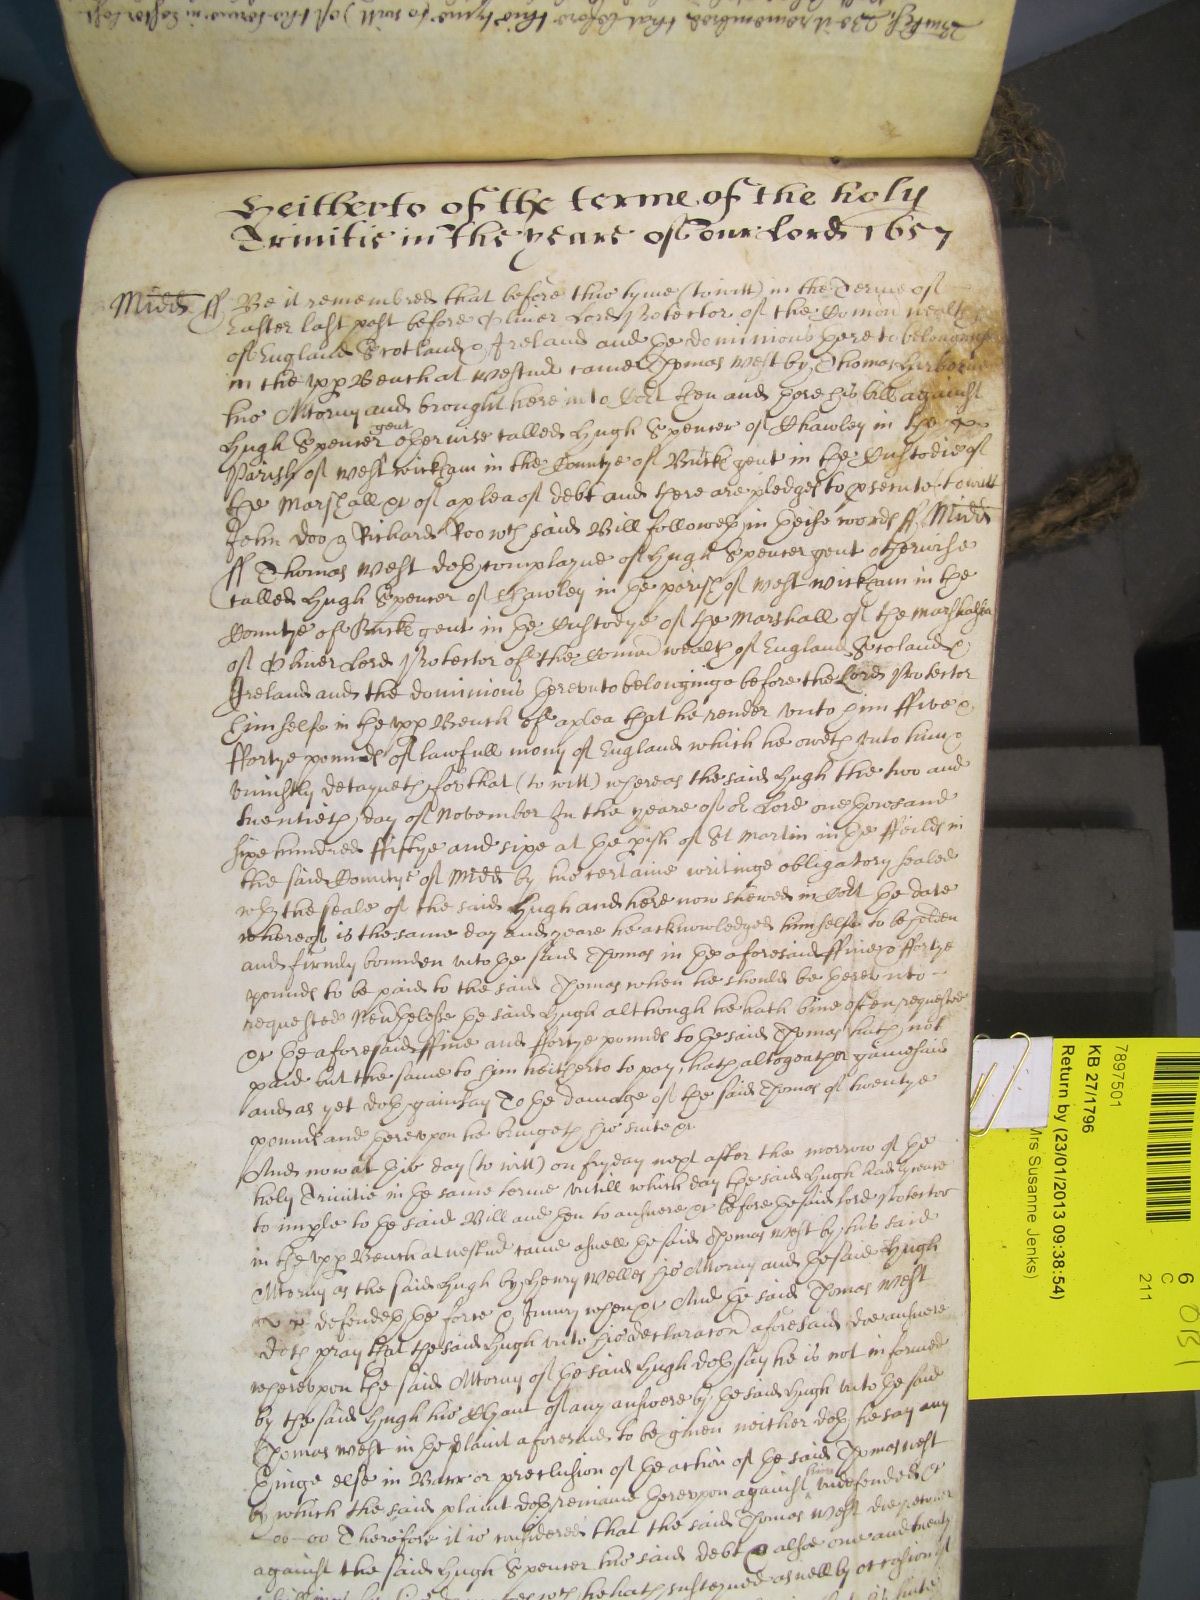 Heitherto of the terme of the holy
Trinitie in the yeare of our Lord 1657
Midd ss Be it remembred that before this tyme (to witt) in the Terme of
Easter last past before Oliver Lord Protector of the Comon wealth
of England Scotland & Ireland and the dominions here to belonginge
in the upp Bench at Westmr came Thomas West by Thomas
his Attorny and brought here into Cort then and there his bill against
gent
Hugh Spencer otherwise called Hugh Spencer of Chawley in the
Parish of West wickham in the Countye of Buck gent in the Custodie of
the Marshall &c of a plea of debt and there are pledges to psecute to witt
John Doo & Richard Roo wch said Bill followeth in theise words ss Midd
ss Thomas West doth complayne of Hugh Spencer gent otherwise
called Hugh Spencer of Chawley in the parish of West wickham in the
Countye of Buck gent in the Custodye of the Marshall of the Marshalsea
of Oliver Lord Protector of the Comon wealth of England Scotland &
Ireland and the dominions hereunto belonginge before the Lord Protector
himselfe in the upp Bench of a plea that he render unto him ffive &
ffortye pounds of lawfull mony of England which he oweth unto him &
uniustly detayneth for that (to witt) whereas the said Hugh the two and
twentieth day of November In the yeare of or Lord one thowsand
sixe hundred ffiftye and sixe at the pish of St Martin in the ffeilds in
the said Countye of Midd by his certaine writinge obligatory sealed
wth the seale of the said Hugh and here now shewed in Cort the date
whereof is the same day and yeare he acknowledged himselfe to be holden
and firmly bounden unto the said Thomas in the aforesaid ffive & ffortye
pounds to be paid to the said Thomas when he should be thereunto
requested Nevthelesse the said Hugh although he hath bine often requested
&c the aforesaid ffive and ffortye pounds to the said Thomas hath not
paid but the same to him heitherto to pay hath altogeather gainesaid
and as yet doth gainsay To the damage of the said Thomas of twentye
pounds and thereupon he bringeth his suite &c
And now at this day (to witt) on fryday next after the morrow of the
holy Trinitie in the same terme untill which day the said Hugh had lycence
to imple to the said Bill and then to answere &c before the said lord Protector
in the upp Bench at westmr came aswell the said Thomas West by his said
Attorny as the said Hugh by Henry Welles his Attorny and the said Hugh
defendeth the force & Iniury when &c And the said Thomas West
doth pray that the said Hugh unto his declaracon aforesaid doe answere
whereupon the said Attorny of the said Hugh doth say he is not informed
by the said Hugh his Clyant of any answere by the said Hugh unto the said
Thomas West in the plaint aforesaid to be given neither doth he say any
thinge else in Barr or preclusion of the action of the said Thomas West
him
by which the said plaint doth remaine thereupon against undefended &c
Therefore it is considered that the said Thomas West doe recover
against the said Hugh Spencer his said debt & alsoe one and twenty
he hath susteyned aswell by occasion of
7897501
KB 27/1796
Return by (23/01/2013 09:38:54)
Mrs Susanne Jenks)
6
C
211